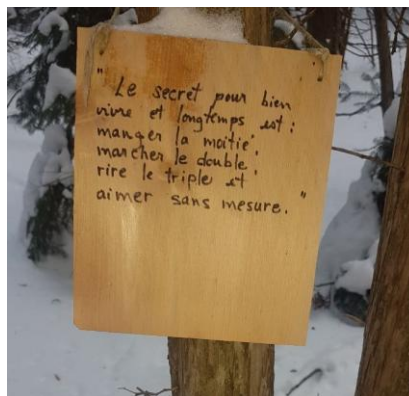 "Le secret pour bien
vivre et longtemps est :
manger la moitié,
marcher le double,
rire le triple et
aimer sans mesure."